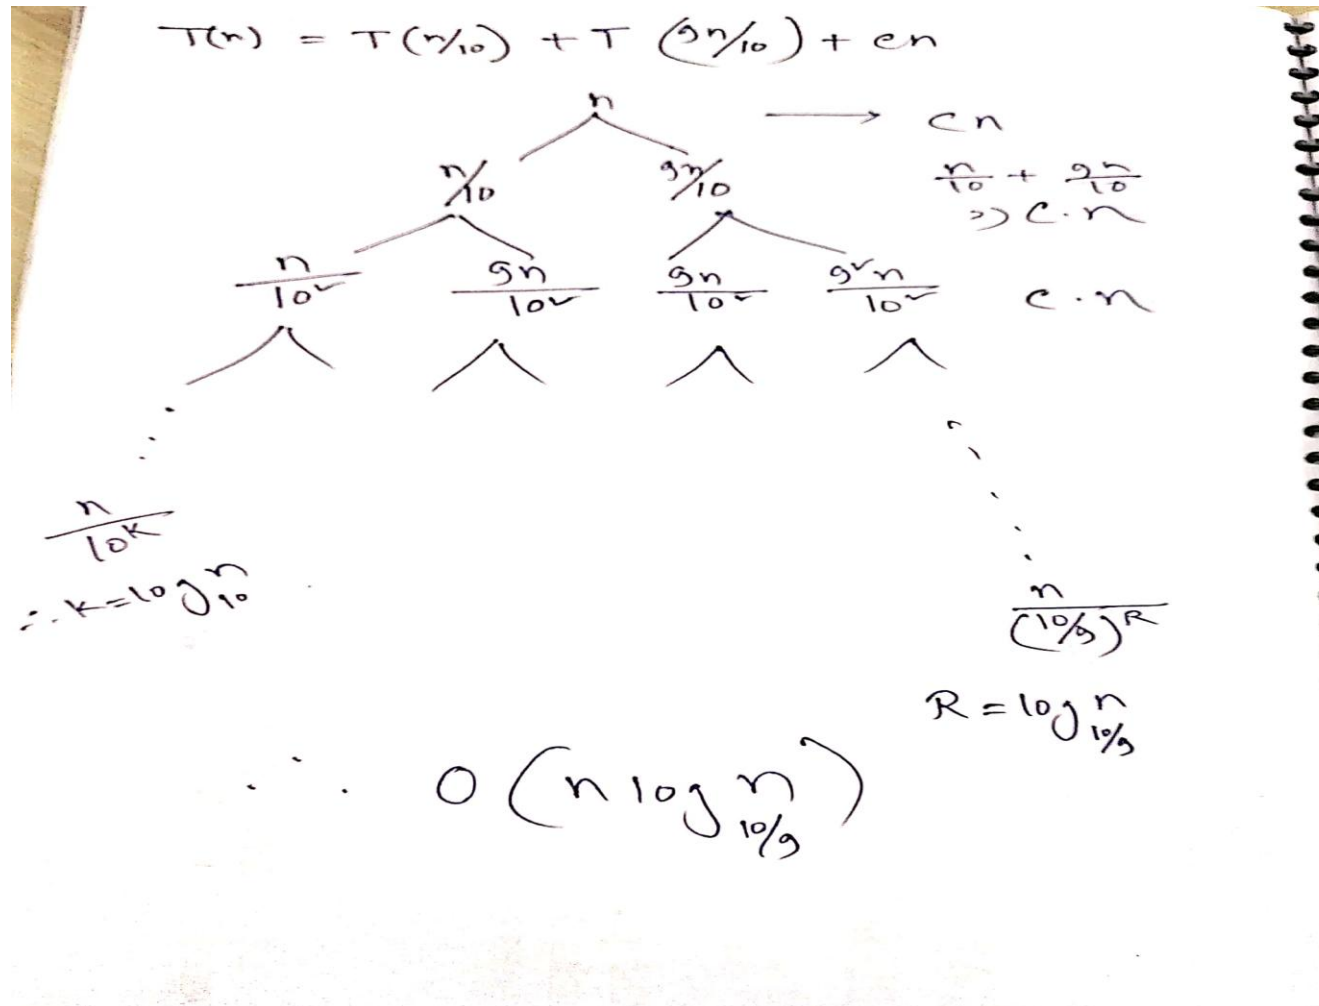 T(n) = T(n/10) + T(9n/10) + cn
n → cn
n/10 9n/10 n/10 + 9n/10
⇒ c.n
n/10² 9n/10² 9n/10² 9²n/10² c.n
n/10^K
∴ K = log₁₀ n
n/(10/9)^R
R = log_{10/9} n
∴ O(n log_{10/9} n)